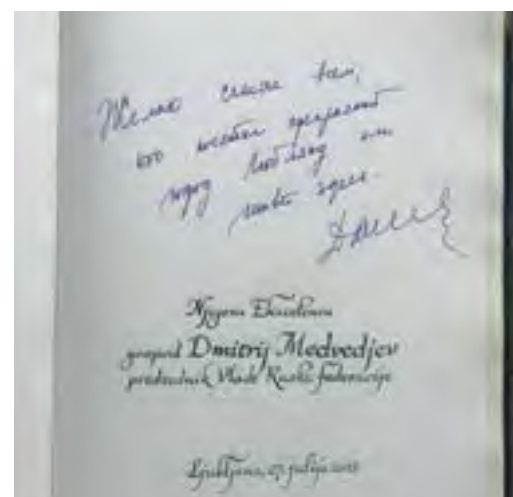 Желаю счастья всем,
кто посетил прекрасный
город Любляну или
живёт здесь.
Njegova Ekscelenca
gospod Dmitrij Medvedjev
predsednik Vlade Ruske federacije
Ljubljana, 27. julija 2015